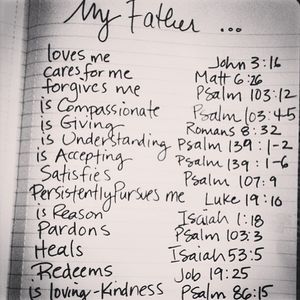 My Father ...
loves me John 3:16
cares for me Matt 6:26
forgives me Psalm 103:12
is Compassionate Psalm 103:4-5
is Giving Romans 8:32
is Understanding Psalm 139:1-2
is Accepting Psalm 139:1-6
Satisfies Psalm 107:9
Persistently Pursues me Luke 19:10
is Reason Isaiah 1:18
Pardons Psalm 103:3
Heals Isaiah 53:5
Redeems Job 19:25
is loving-Kindness Psalm 86:15